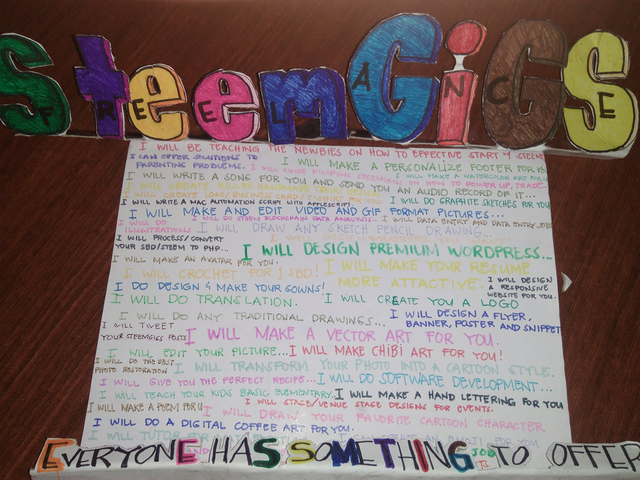 SteemGigS
FREELANCE
I WILL BE TEACHING THE NEWBIES ON HOW TO EFFECTIVE START 4 STEEM
I CAN OFFER SOLUTIONS TO PARENTING PROBLEMS.
I WILL MAKE A PERSONALIZE FOOTER FOR YOU
I WILL WRITE A SONG FOR YOU AND SEND YOU AN AUDIO RECORD OF IT...
I WILL DO GRAPHITE SKETCHES FOR YOU
I WILL WRITE A MAC AUTOMATION SCRIPT WITH APPLESCRIPT.
I WILL MAKE AND EDIT VIDEO AND GIF FORMAT PICTURES...
I WILL DO STEEM BLOCKCHAIN DATA ANALYSIS
I WILL DATA ENTRY AND DATA ENTRY JOBS
I WILL DO ILLUSTRATIONS
I WILL DRAW ANY SKETCH PENCIL DRAWING...
I WILL PROCESS/CONVERT YOUR SBD/STEEM TO PHP...
I WILL DESIGN PREMIUM WORDPRESS...
I WILL MAKE AN AVATAR FOR YOU.
I WILL CROCHET FOR 1 SBD!
I WILL MAKE YOUR RESUME MORE ATTACTIVE.
I WILL DESIGN A RESPONSIVE WEBSITE FOR YOU.
I DO DESIGN & MAKE YOUR GOWNS!
I WILL DO TRANSLATION.
I WILL CREATE YOU A LOGO
I WILL DO ANY TRADITIONAL DRAWINGS...
I WILL DESIGN A FLYER, BANNER, POSTER AND SNIPPET
I WILL TWEET YOUR STEEMGIGS POSTS
I WILL MAKE A VECTOR ART FOR YOU.
I WILL EDIT YOUR PICTURE...
I WILL MAKE CHIBI ART FOR YOU!
I WILL DO THE BEST PHOTO RESTORATION
I WILL TRANSFORM YOUR PHOTO INTO A CARTOON STYLE.
I WILL GIVE YOU THE PERFECT RECIPE...
I WILL DO SOFTWARE DEVELOPMENT...
I WILL TEACH YOUR KIDS BASIC ELEMENTARY
I WILL MAKE A HAND LETTERING FOR YOU
I WILL STAGE/VENUE STAGE DESIGNS FOR EVENTS.
I WILL MAKE A POEM FOR U
I WILL DRAW YOUR FAVORITE CARTOON CHARACTER
I WILL DO A DIGITAL COFFEE ART FOR YOU.
I WILL TUTOR
EVERYONE HAS SOMETHING TO OFFER